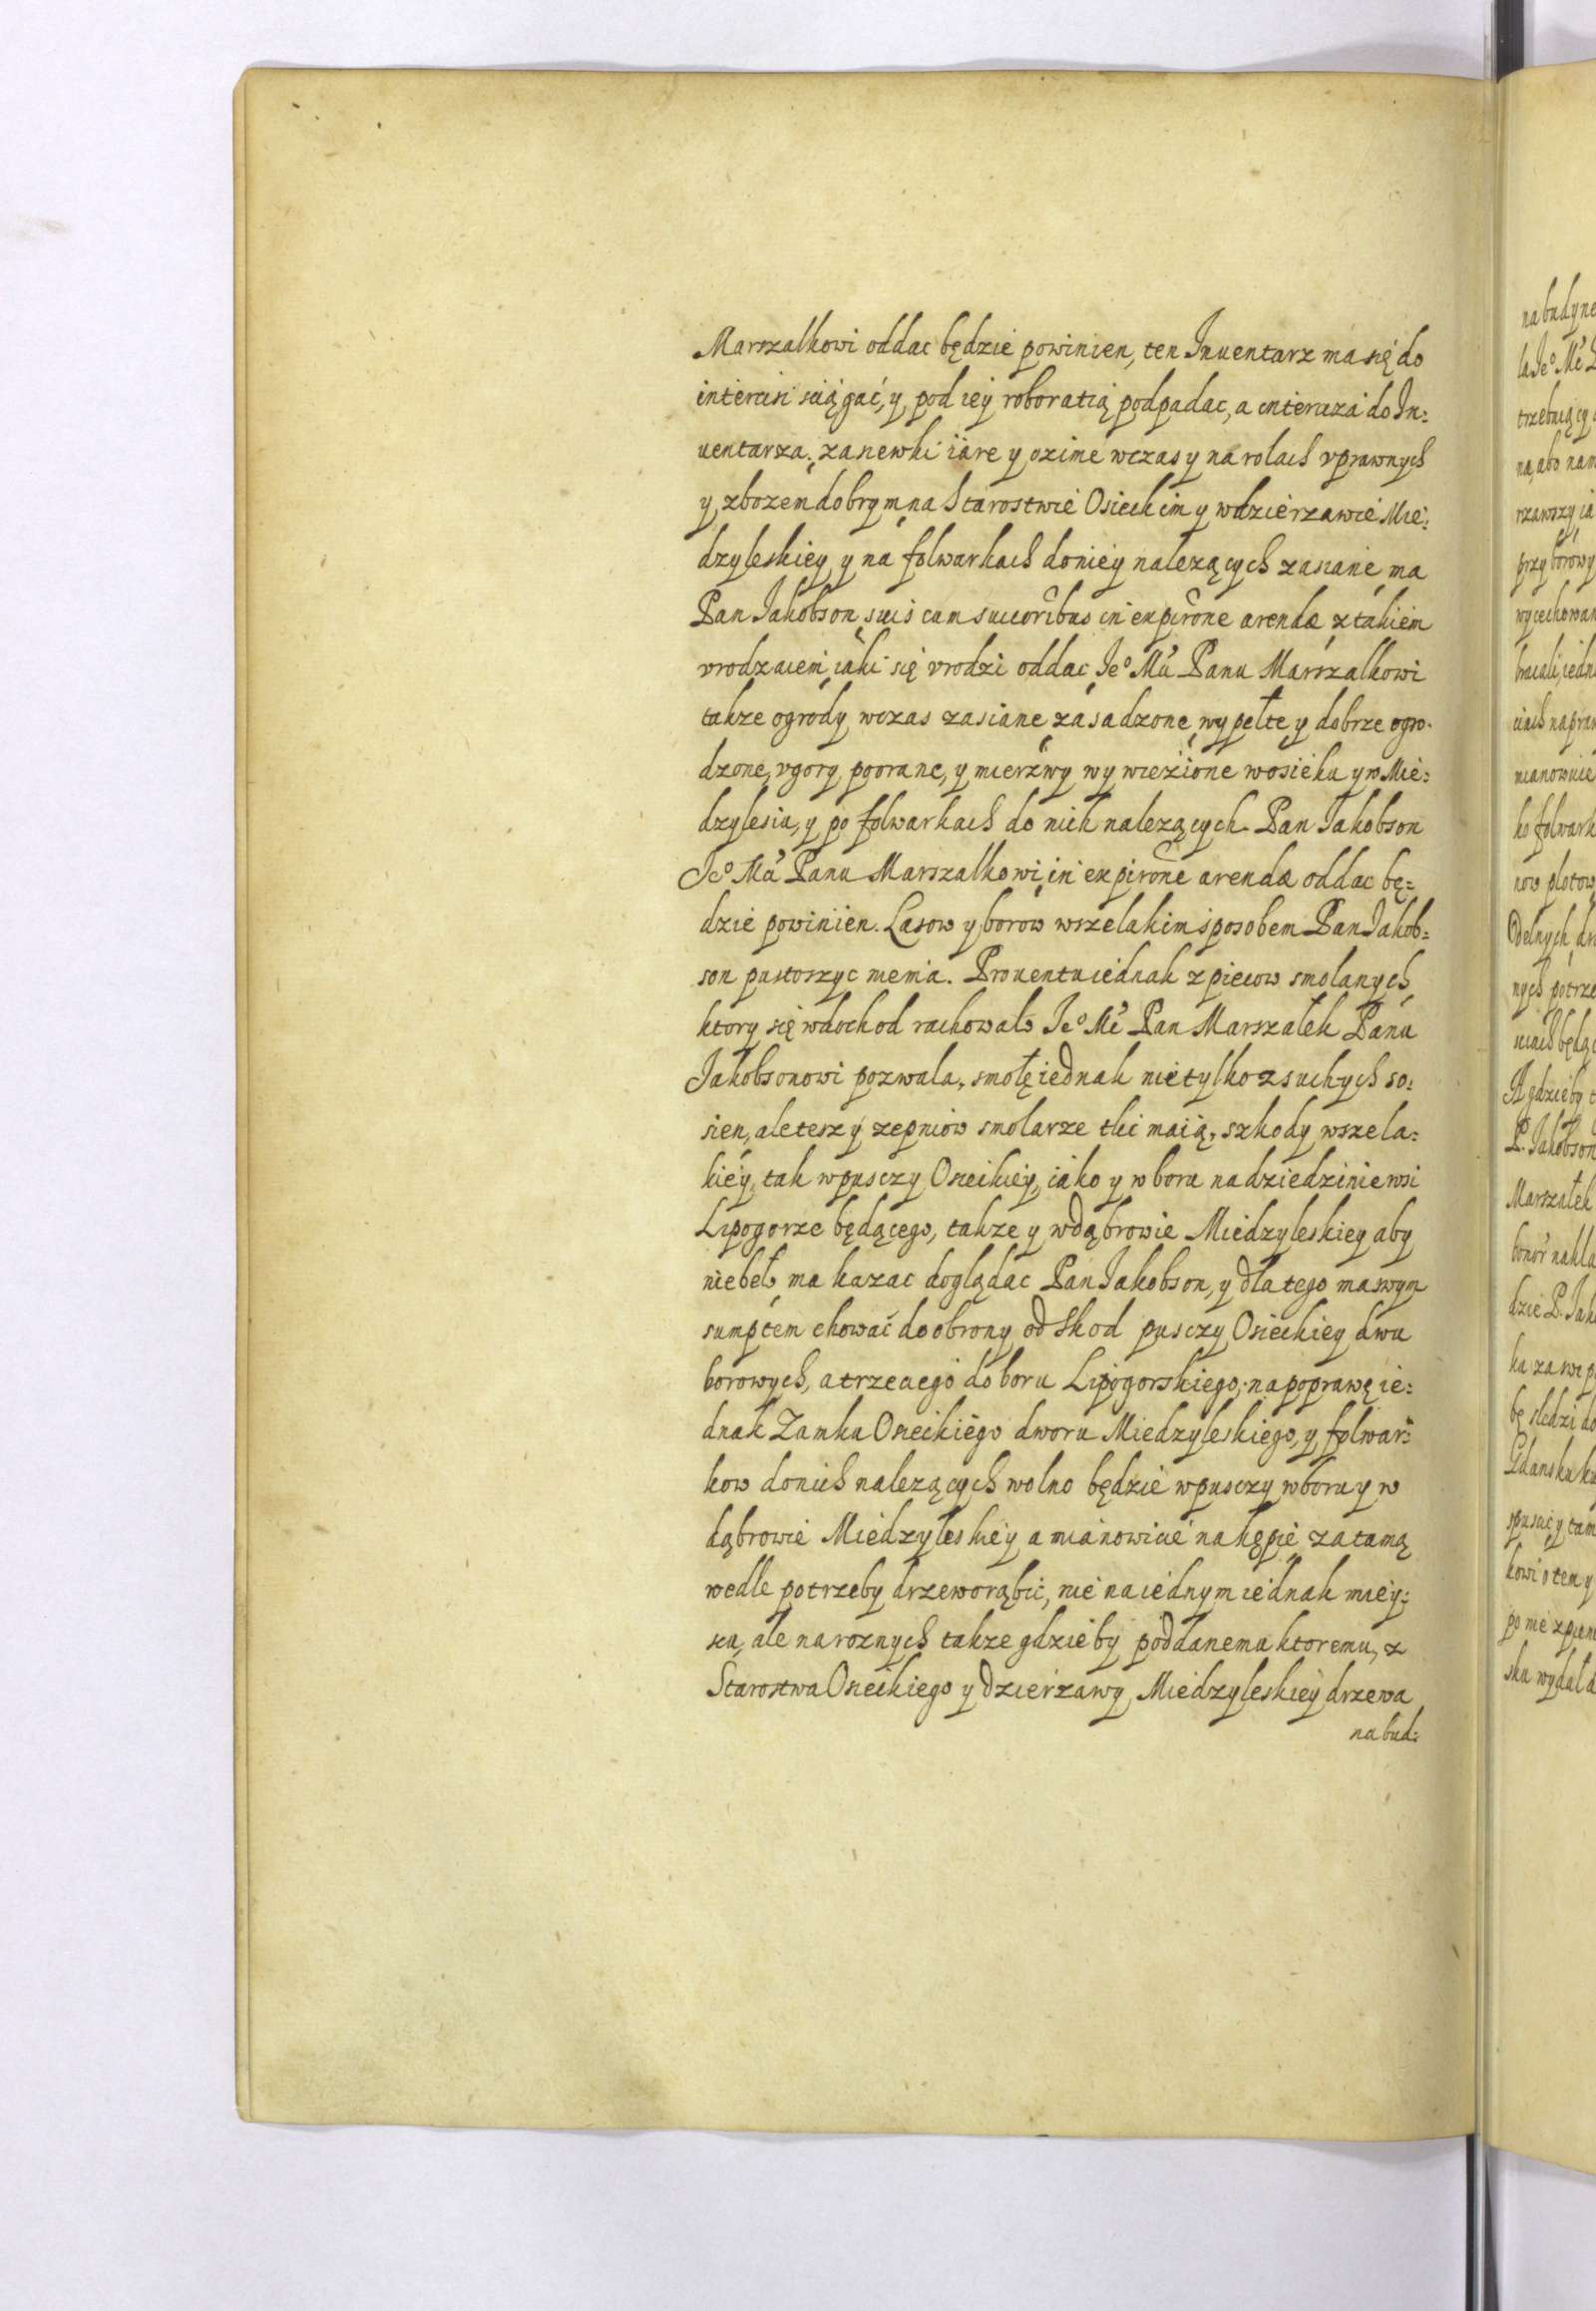 Marszalkowi oddac będzie powinien, ten Inuentarz ma się do
intercisi sciągać, y pod iey roboratią podpadac, a interciza do In=
uentarza. zasiewki iare y ozime wczas y na rolach vprawnych
y zbozem dobrym na Starostwie Osieckim y wdzierzawie Mie=
dzyleskiey y na folwarkach doniey nalezących zasiane ma
Pan Jakobson suis cum succoribus in expirone arendæ z takiem
vrodzaiem iaki się vrodzi oddac Je⁰ Mći Panu Marszalkowi
takze ogrody wczas zasiane zasadzone wypełte y dobrze ogro=
dzone, vgory poorane, y mierzwy wywieźione wosieku y w Mie=
dzylesiu, y po folwarkach do nich nalezących Pan Jakobson
Je⁰ Mći Panu Marszalkowi in expirone arendæ oddac bę=
dzie powinien. Lasow y borow wszelakim sposobem Pan Jakob=
son pustoszyc niema. Prouentu iednak z piecow smolanych
ktory się wdochod rachowało Je⁰ Mć Pan Marszałek Panu
Jakobsonowi pozwala, smołę iednak nie tylko z suchych so=
sien, ale tesz y zepniow smolarze tlic maią, szkody wszela=
kiey, tak wpusczy Osieckiey, iako y w boru na dziedzinie wsi
Lipogorze będącego, takze y wdąbrowie Miedzyleskiey aby
niebeło ma kazac doglądac Pan Jakobson, y dla tego ma swym
sumptem chować do obrony od skod pusczy Osieckiey dwu
borowych, a trzeciego do boru Lipogorskiego, na poprawę ie=
dnak Zamku Osieckiego dworu Miedzyleskiego, y folwar=
kow donich nalezących wolno będzie wpusczy wboru y w
dąbrowie Miedzyleskiey a mianowicie na kępie za tamą
wedle potrzeby drzewo rąbić, nie na iednym iednak miey=
scu, ale na roznych takze gdzieby poddanemu ktoremu, z
Starostwa Osieckiego y dzierzawy Miedzyleskiey drzewa
na bud=